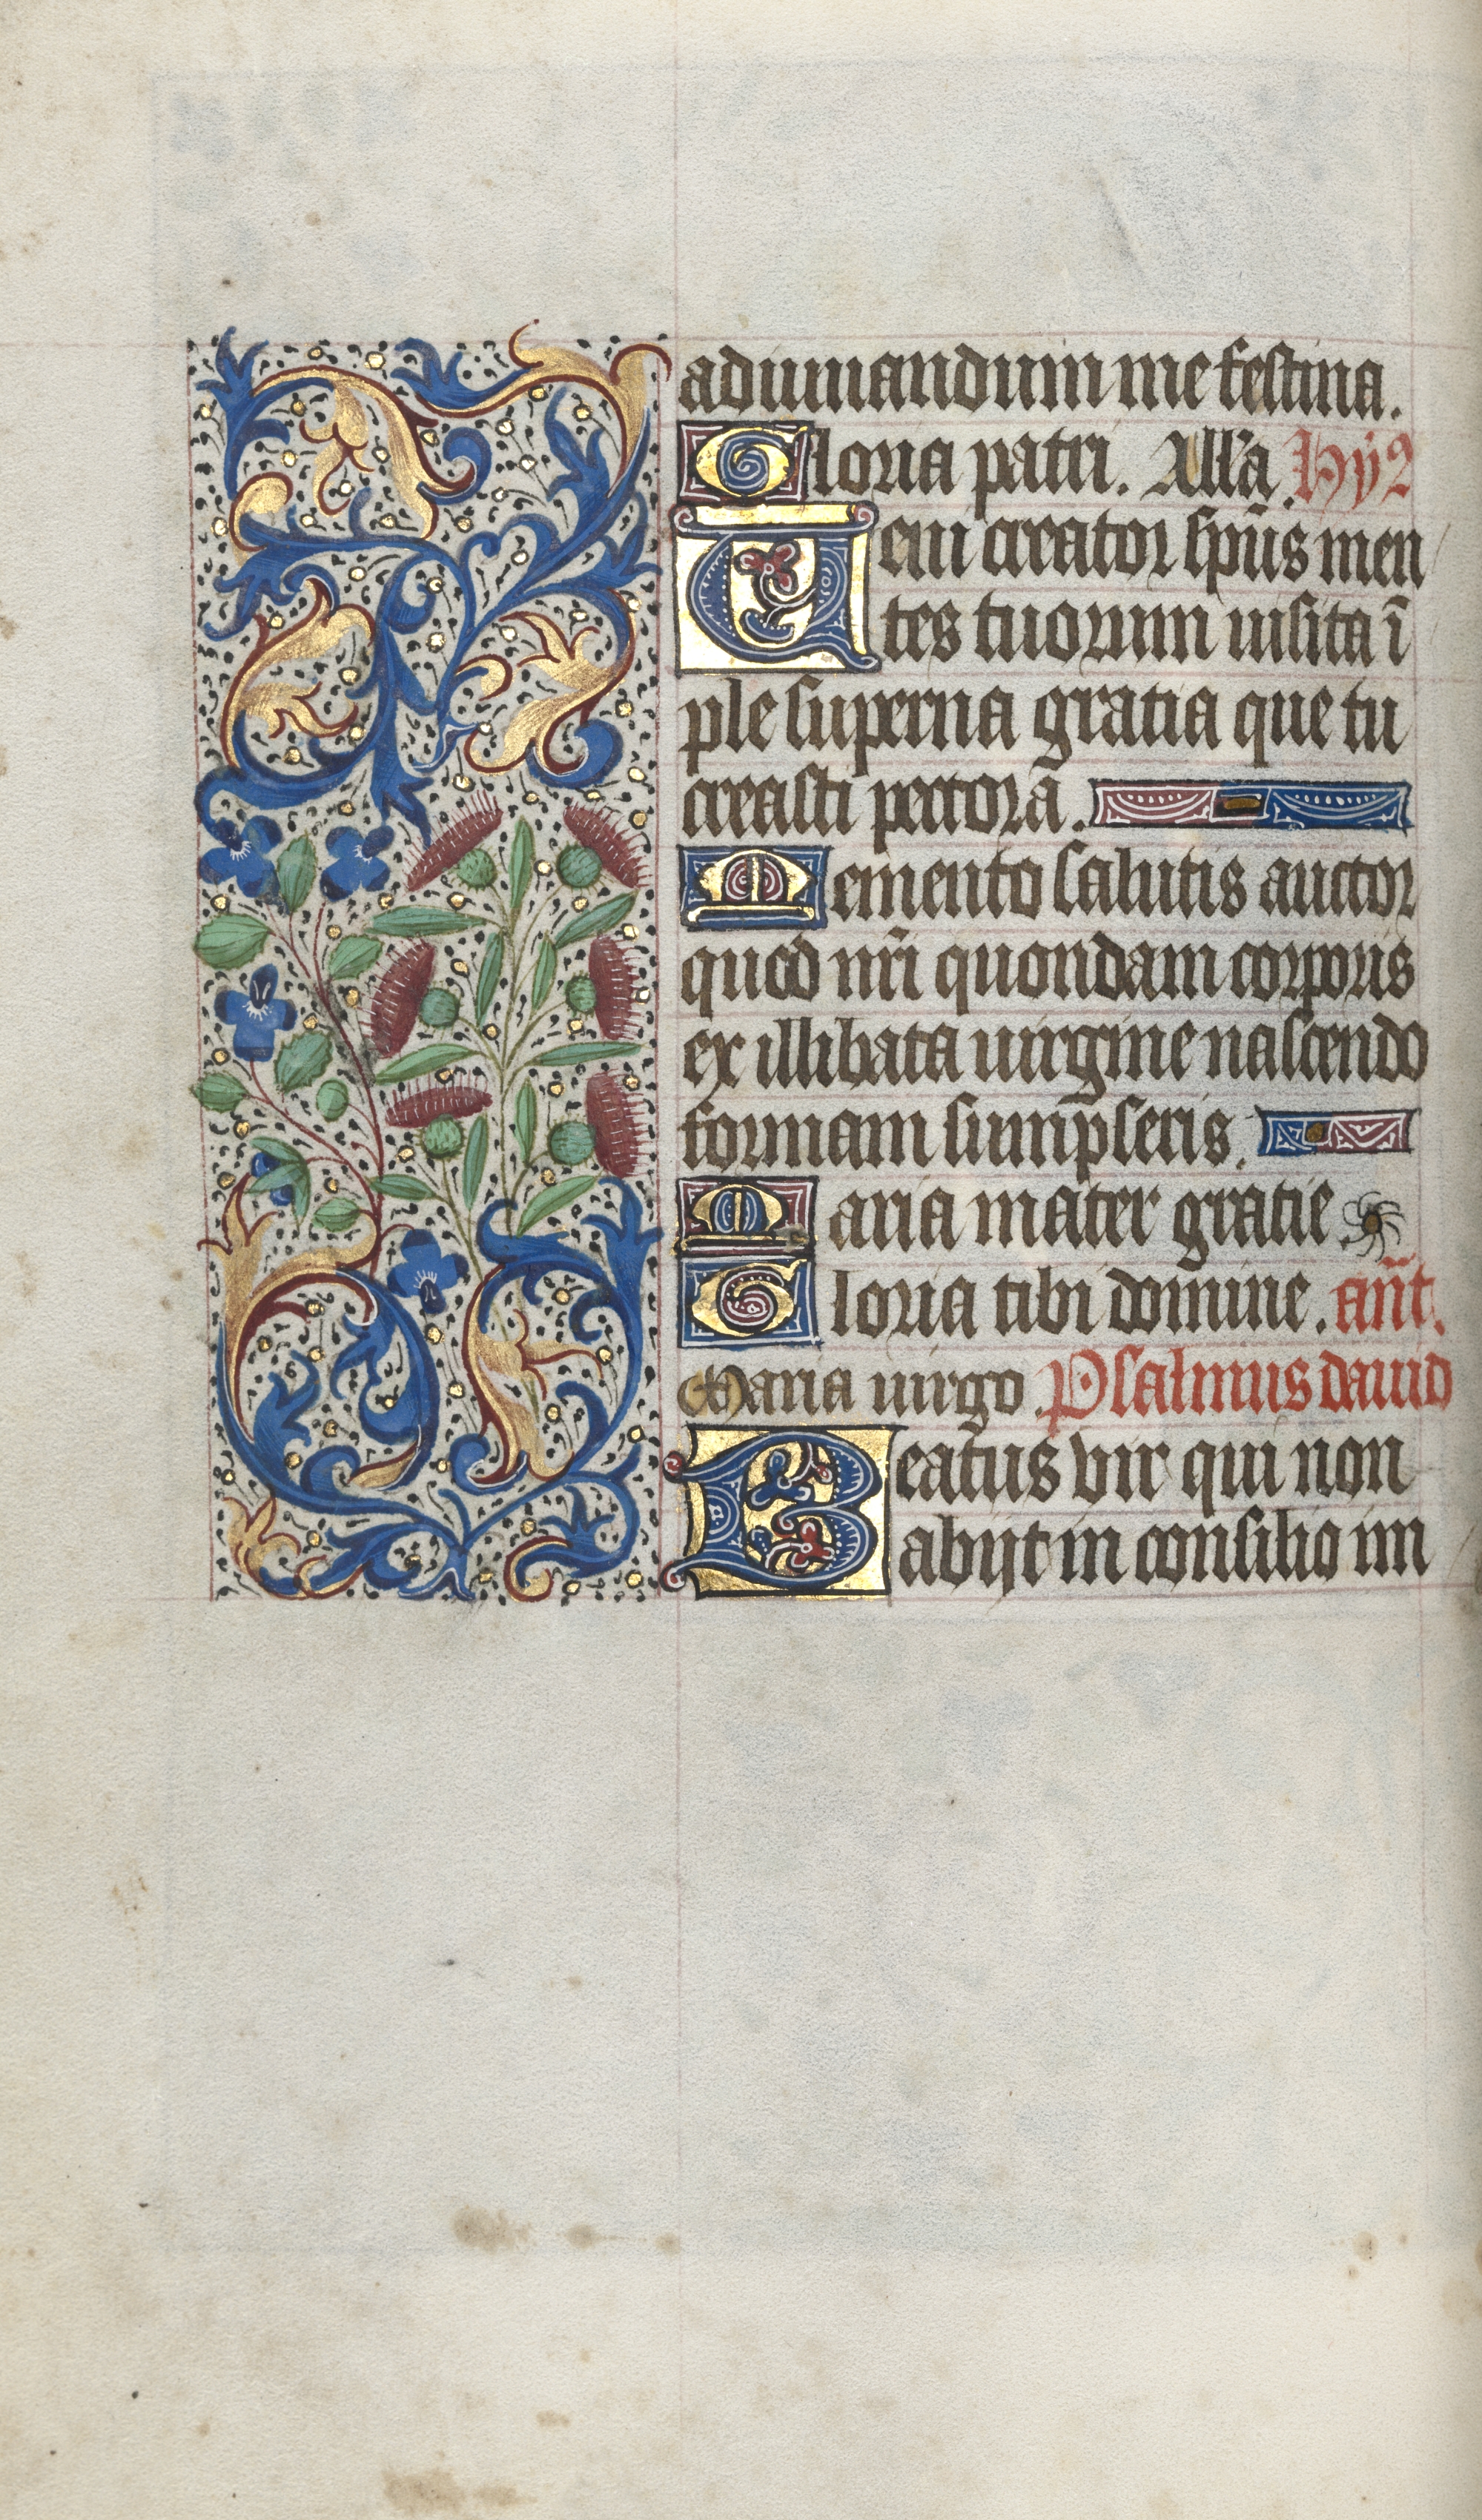 adiuuandum me festina.
Gloria patri. All'a. Hy2
Ueni creator sp̃us men
tes tuorum uisita ĩ
ple superna gratia que tu
creasti pectorã.
Memento salutis auctor
quod nr̃i quondam corporis
ex illibata uirgine nascendo
formam sump̃seris.
Maria mater gratie.
Gloria tibi domine. añt.
Maria uirgo Psalmus dauid
Beatus vir qui non
abijt in consilio im